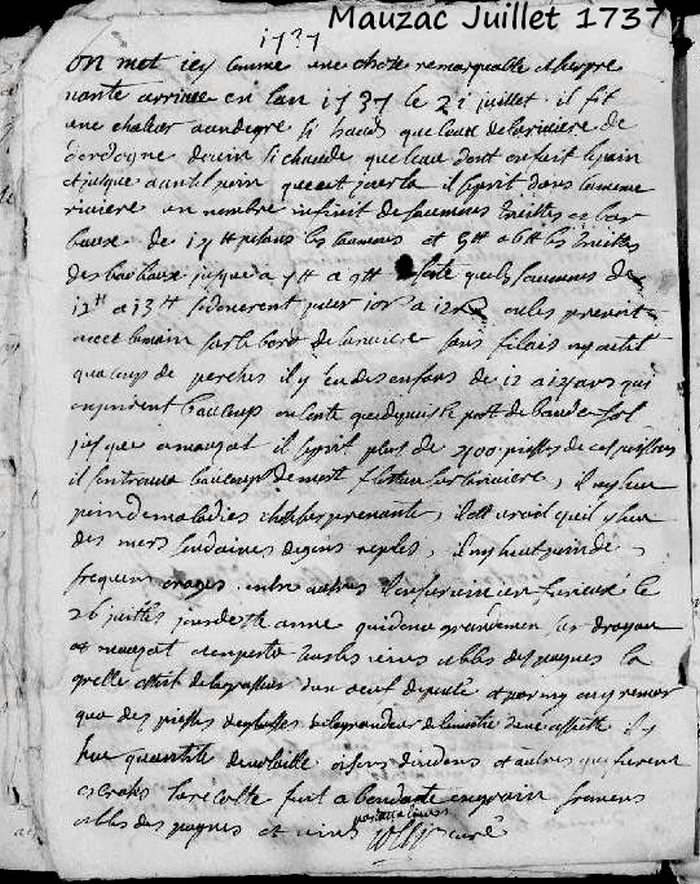 Mauzac Juillet 1737
1737
on met icy comme une chose remarquable et surpre
nante arrivee en lan 1737 le 21 juillet il fit
une chaleur aun degre si haud que leau de la riviere de
dordogne devin si chaude que leau dont on fait le pain
et jusque a un tel poin que cet par la il se prit dans la meme
riviere un nombre infinit de saumons truittes et bar
baux de 17 tt pesans les saumons et 5 tt a 6 tt les truittes
des barbaux jusque a 7 tt a 9 tt en sorte que les saumons de
12 tt a 13 tt se donerent pour 10 s a 12 s on les prenoit
avec la main sur le bord de la riviere sans filais ny autre
qua coup de perches il y eu des enfans de 12 a 13 ans qui
en prirent beaucoup en sorte que depuis le port de
jusque a mauzat il se prit plus de 2700 piesses de ces poissons
il sen trouva beaucoup de mort flottan sur la riviere, il ny heu
poin de maladies chose surprenante, il est vray quil y heu
des mors soudaines de gens reples, il ny heut poin de
frequen orages entre autres il en survin un furieux le
26 juillet jour de ste anne qui dona grandemen sur drayau
et mauzat et emporta tous les vins et bles despagnes la
grelle etoit de la grosseur dun oeuf de poule et par my on y remar
qua des piesses de glasses de la grandeur de la moitie dune assiette il y
heu quantite de volaille oisons dindons et autres que furent
ecrases la recolte fut abondante en grain fromens
et bles des pagnes et vins
curé